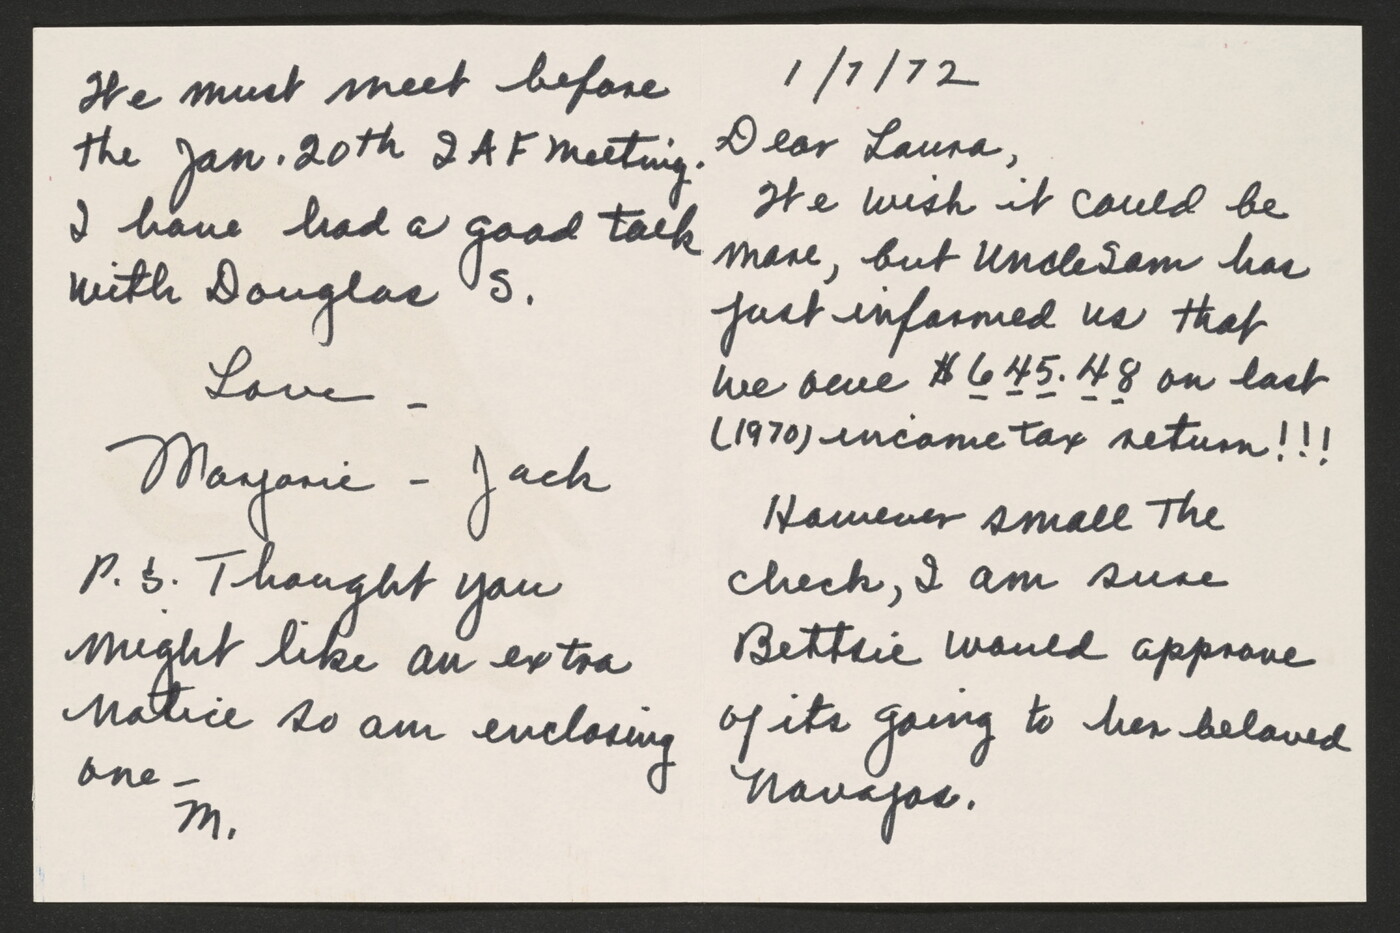 1/7/72
Dear Laura,
We wish it could be
more, but Uncle Sam has
just informed us that
we owe $645.48 on last
(1970) income tax return!!!
However small the
check, I am sure
Bettsie would approve
of its going to her beloved
Navajos.
We must meet before
the Jan. 20th IAF meeting.
I have had a good talk
with Douglas S.
Love –
Marjorie – Jack
P.S. Thought you
might like an extra
notice so am enclosing
one –
M.